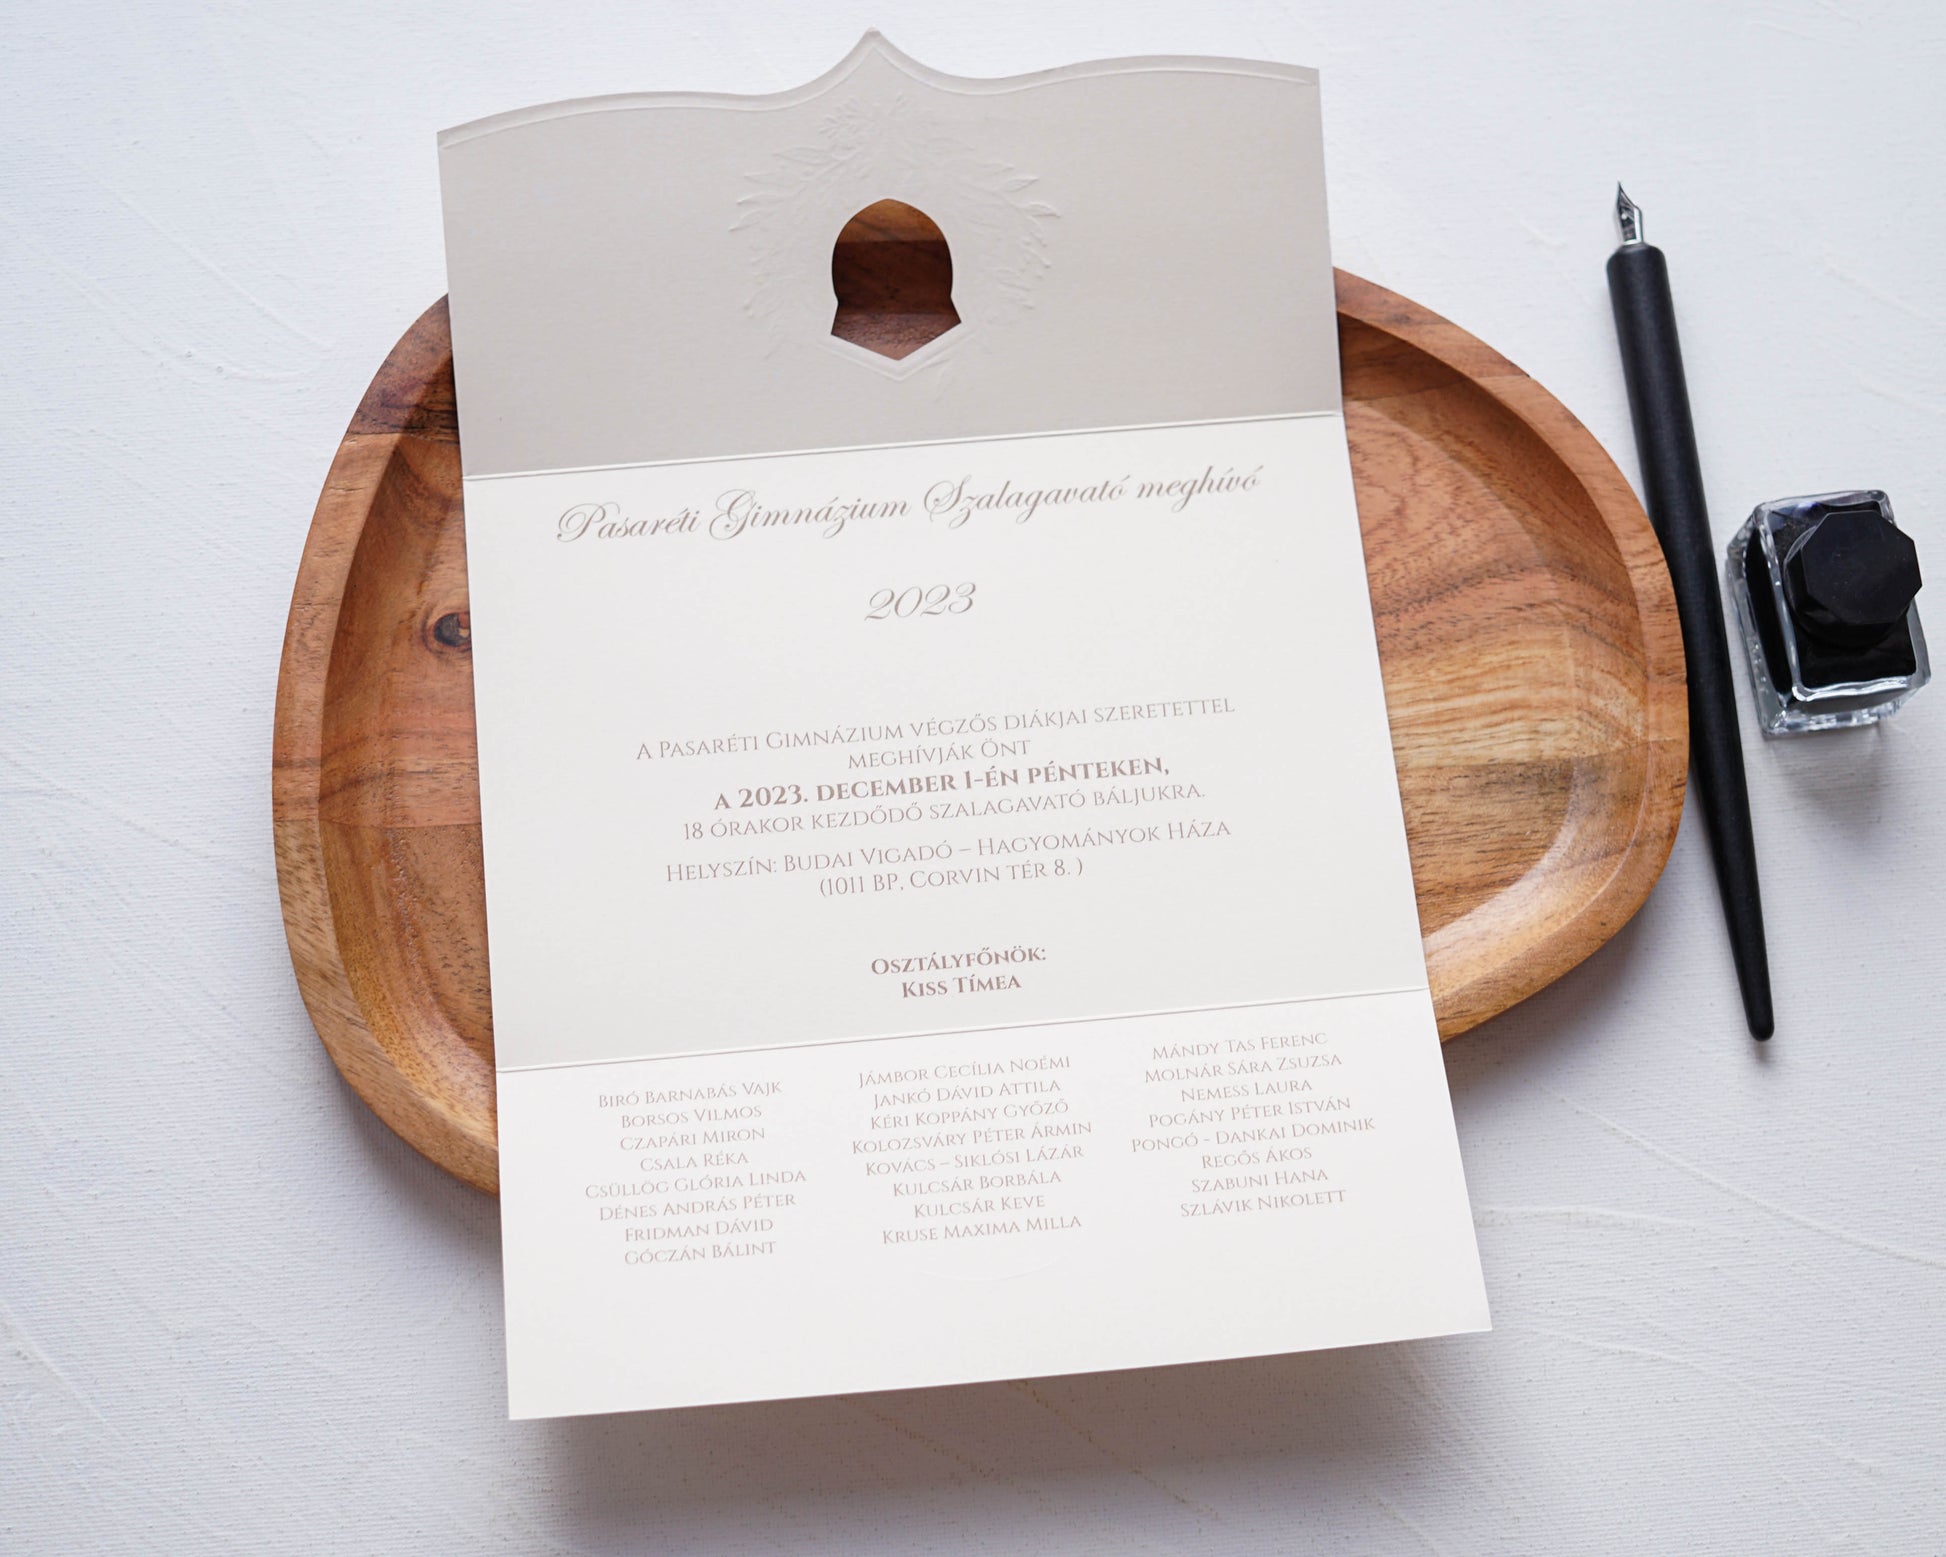 Pasaréti Gimnázium Szalagavató meghívó
2023
A Pasaréti Gimnázium végzős diákjai szeretettel
meghívják Önt
a 2023. december 1-én pénteken,
18 órakor kezdődő szalagavató báljukra.
Helyszín: Budai Vigadó – Hagyományok Háza
(1011 BP, Corvin tér 8. )
Osztályfőnök:
Kiss Tímea
Biró Barnabás Vajk
Borsos Vilmos
Czapári Miron
Csala Réka
Csüllög Glória Linda
Dénes András Péter
Fridman Dávid
Góczán Bálint
Jámbor Cecília Noémi
Jankó Dávid Attila
Kéri Koppány Győző
Kolozsváry Péter Ármin
Kovács – Siklósi Lázár
Kulcsár Borbála
Kulcsár Keve
Kruse Maxima Milla
Mándy Tas Ferenc
Molnár Sára Zsuzsa
Nemess Laura
Pogány Péter István
Pongó - Dankai Dominik
Regős Ákos
Szabuni Hana
Szlávik Nikolett